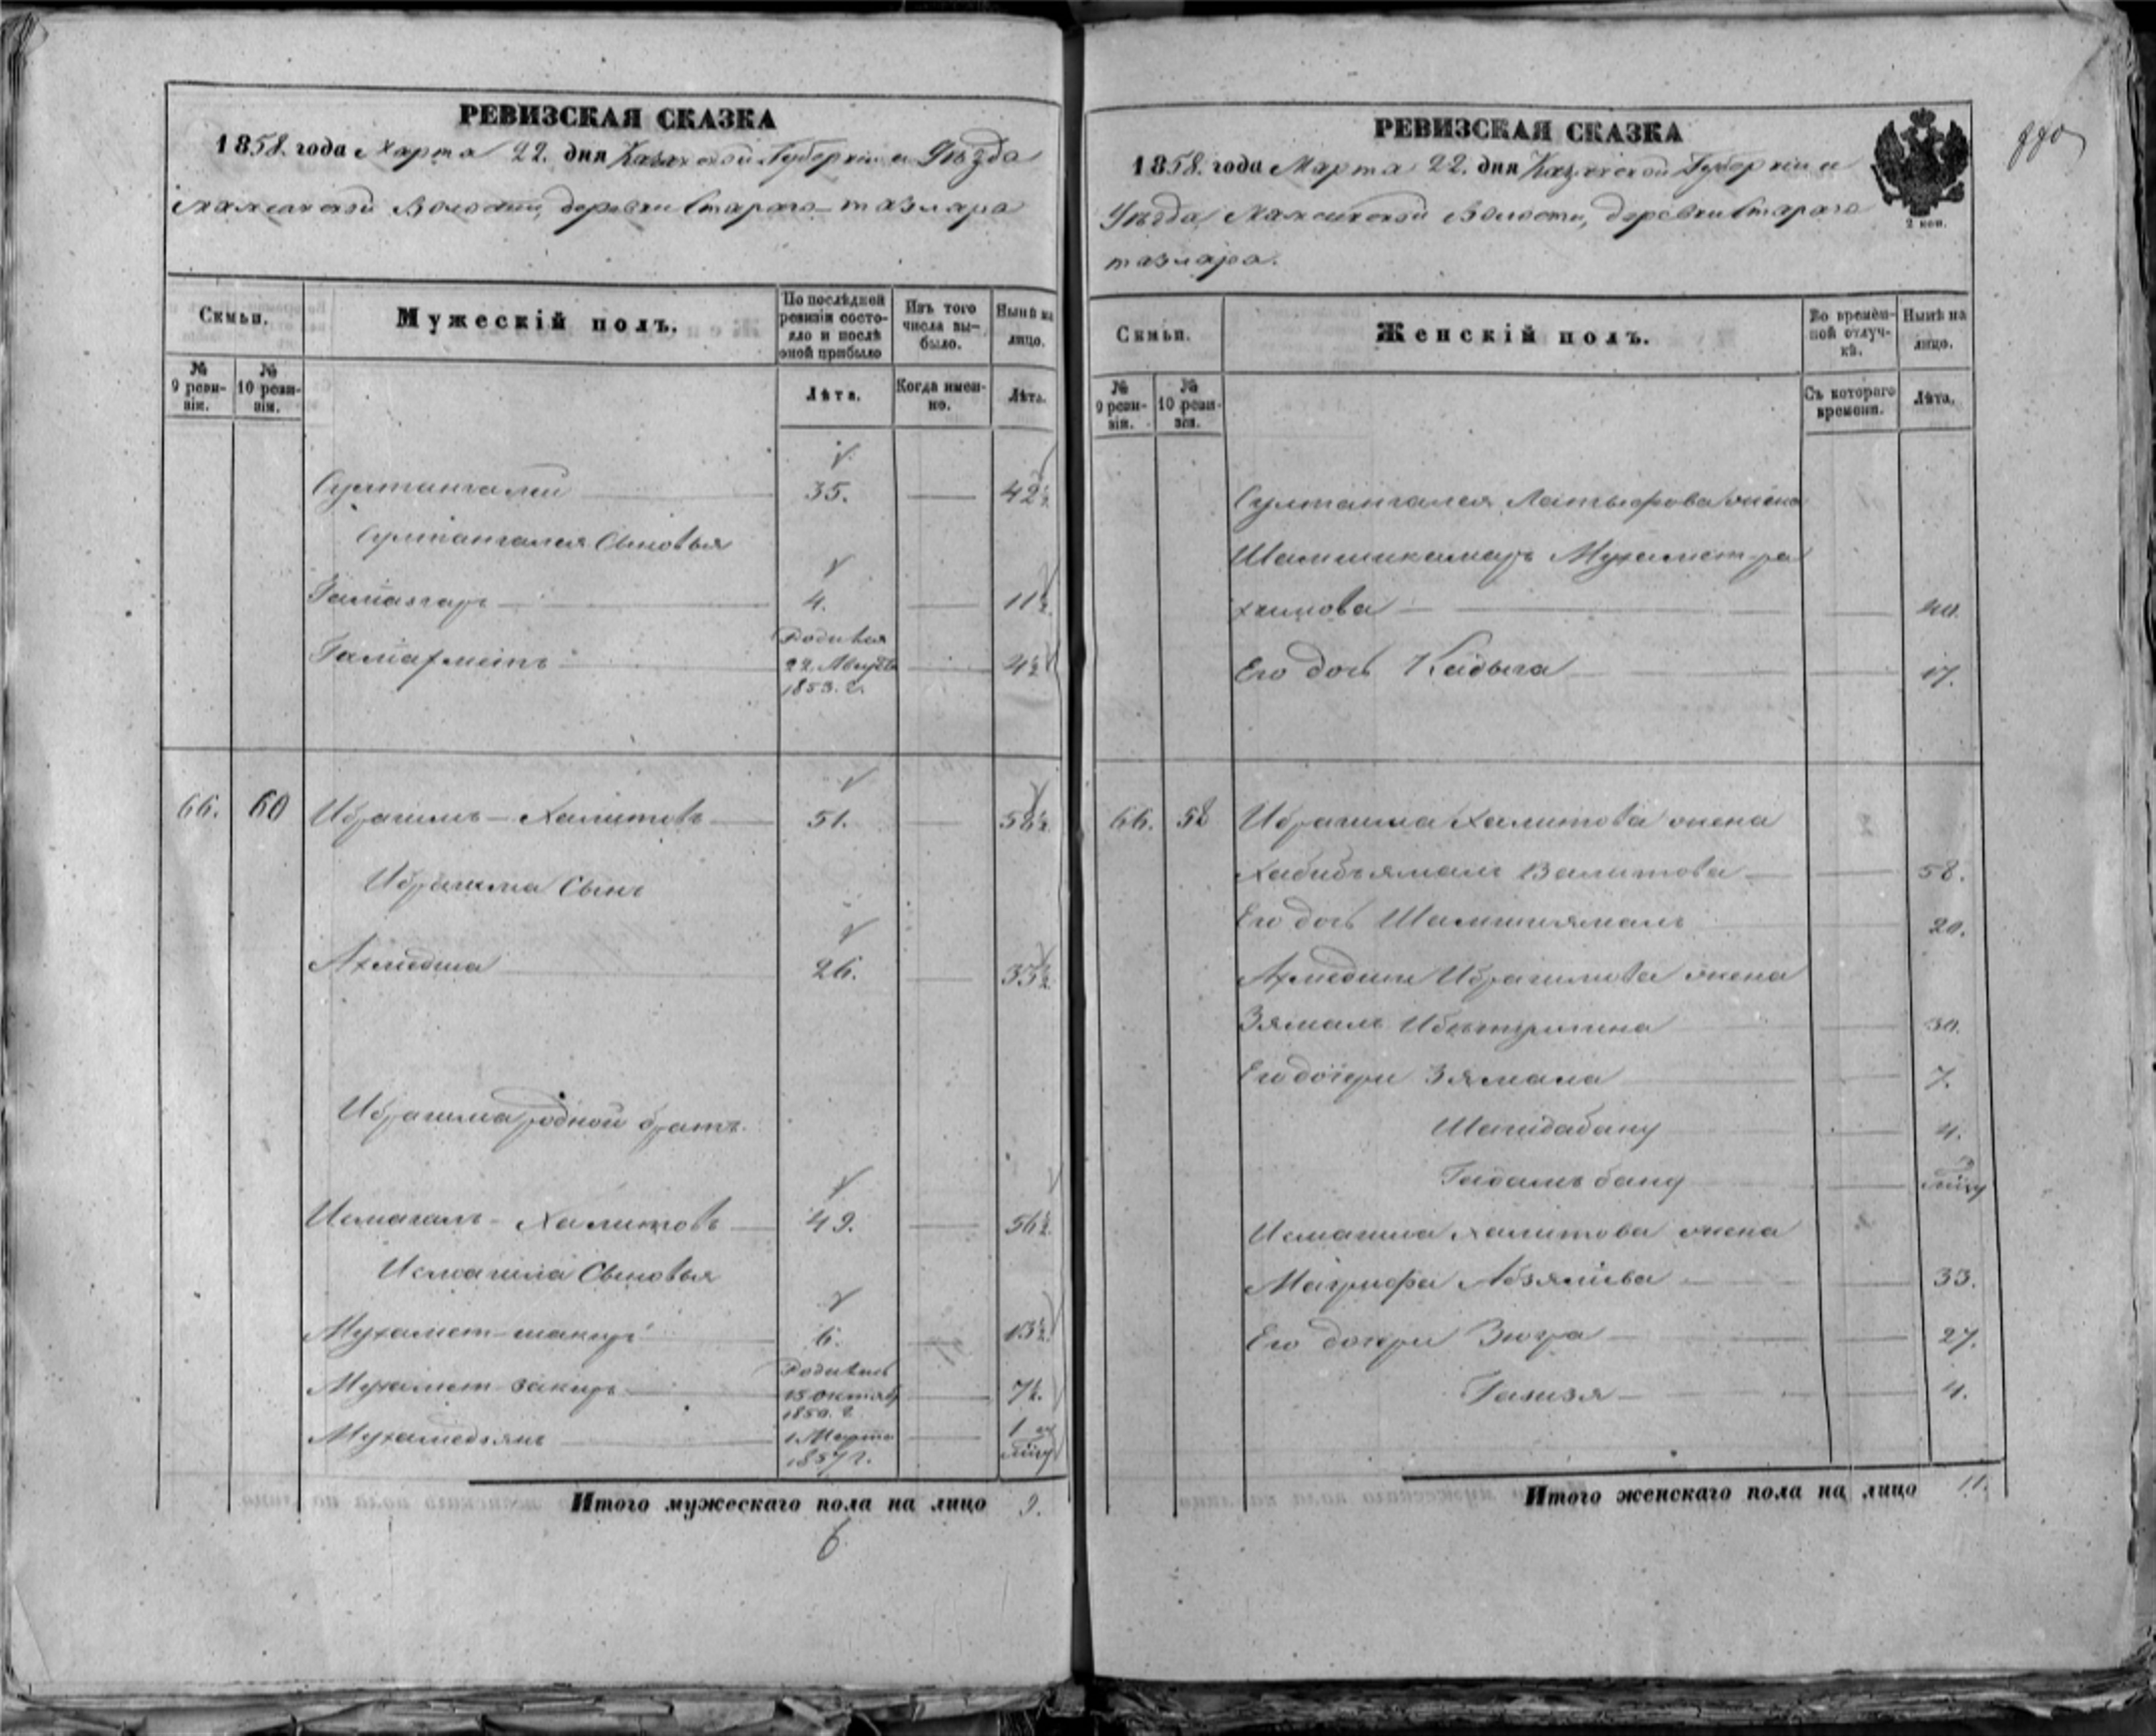 РЕВИЗСКАЯ СКАЗКА
1858. года Марта 22. дня Казанской Губернии и Уѣзда
Мамсинской Волости, деревни Стараго-тазлара
Семьи.
Мужескій полъ.
По послѣдней ревизіи состояло и послѣ оной прибыло
Изъ того числа выбыло.
Нынѣ на лицо.
№ 9 ревизіи.
№ 10 ревизіи.
Лѣта.
Когда именно.
Лѣта.
Султангалей 35. 42½
Султангалея Сыновья
4. 11½
Родился 22. Августа 1853. г. 4½
66. 60 Ибрагимъ Халитовъ 51. 58½
Ибрагима Сынъ
Ахмедша 26. 33½
Ибрагима родной братъ.
Исмагилъ Халитовъ 49. 56½
Исмагила Сыновья
Мухамет-шакиръ 6. 13½
Мухамет-закиръ Родились 15 октяб 1850. г. 7½.
Мухамедзянъ 1 Марта 1857 г. 1
Итого мужескаго пола на лицо 9.
6
РЕВИЗСКАЯ СКАЗКА
1858. года Марта 22. дня Казанской Губерніи и
Уѣзда, Мамсинской Волости, деревни Стараго
тазлара.
2 коп.
880
Семьи.
Женскій полъ.
Во временной отлучкѣ.
Нынѣ на лицо.
№ 9 ревизіи.
№ 10 ревизіи.
Съ котораго времени.
Лѣта.
Султангалея Латыфова жена
Шамсикамаръ Мухамет-ра
химова 40.
Его дочь Кадыга 17.
66. 58 Ибрагима Халитова жена
Хабибъямалъ Валитова 58.
Его дочь Шамсиямалъ 20.
Ахмедши Ибрагимова жена
Зямалъ 30.
Его дочери Зямала 7.
Шагидабану 4.
бану
Исмагила Халитова жена
Магруфа Абзялова 33.
Его дочери Зюгра 27.
Гализя 4.
Итого женскаго пола на лицо 11.